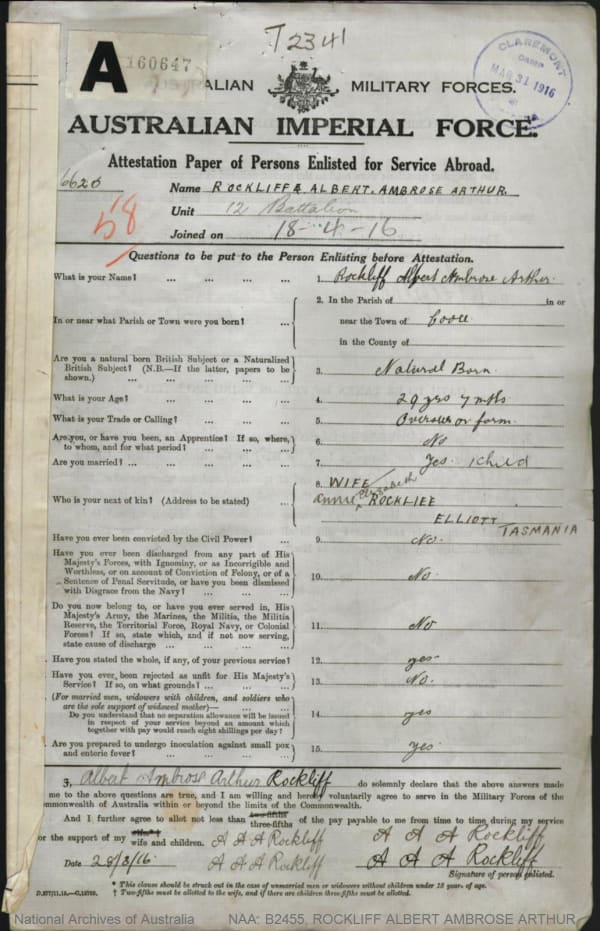 T2341
A 160647
ALIAN MILITARY FORCES.
CLAREMONT
CAMP
MAR 31 1916
AUSTRALIAN IMPERIAL FORCE.
Attestation Paper of Persons Enlisted for Service Abroad.
6620
Name ROCKLIFF ALBERT. AMBROSE ARTHUR.
58
Unit 12 Battalion
Joined on 18-4-16
Questions to be put to the Person Enlisting before Attestation.
What is your Name? ... ... ... ... 1. Rockliff Albert Ambrose Arthur.
2. In the Parish of in or
In or near what Parish or Town were you born? ... near the Town of
in the County of
Are you a natural born British Subject or a Naturalized
British Subject? (N.B.—If the latter, papers to be
shown.) ... ... ... ... 3. Natural Born.
What is your Age? ... ... ... ... 4. 29 yrs 7 mths
What is your Trade or Calling? ... ... ... 5. Overseer on farm.
Are you, or have you been, an Apprentice? If so, where,
to whom, and for what period? ... ... ... 6. No
Are you married? ... ... ... ... 7. Yes. 1 child
8. WIFE
Who is your next of kin? (Address to be stated) ... Annie Elizabeth ROCKLIFF
ELLIOTT TASMANIA
Have you ever been convicted by the Civil Power? ... 9. No.
Have you ever been discharged from any part of His
Majesty's Forces, with Ignominy, or as Incorrigible and
Worthless, or on account of Conviction of Felony, or of a
Sentence of Penal Servitude, or have you been dismissed
with Disgrace from the Navy? ... ... 10. No.
Do you now belong to, or have you ever served in, His
Majesty's Army, the Marines, the Militia, the Militia
Reserve, the Territorial Force, Royal Navy, or Colonial
Forces? If so, state which, and if not now serving,
state cause of discharge ... ... ... 11. No
Have you stated the whole, if any, of your previous service? 12. yes
Have you ever been rejected as unfit for His Majesty's
Service? If so, on what grounds? ... ... 13. No.
(For married men, widowers with children, and soldiers who
are the sole support of widowed mother)— ... ...
Do you understand that no separation allowance will be issued
in respect of your service beyond an amount which
together with pay would reach eight shillings per day? 14 yes
Are you prepared to undergo inoculation against small pox
and enteric fever? ... ... ... ... 15. Yes
I, Albert Ambrose Arthur Rockliff do solemnly declare that the above answers made
me to the above questions are true, and I am willing and hereby voluntarily agree to serve in the Military Forces of the
mmonwealth of Australia within or beyond the limits of the Commonwealth.
And I further agree to allot not less than two-fifths three-fifths of the pay payable to me from time to time during my service
or the support of my wife and children. A A A Rockliff A A A Rockliff
Date 28/3/16. A A A Rockliff A A A Rockliff
Signature of person enlisted.
* This clause should be struck out in the case of unmarried men or widowers without children under 18 years of age.
† Two-fifths must be allotted to the wife, and if there are children three-fifths must be allotted.
National Archives of Australia NAA: B2455, ROCKLIFF ALBERT AMBROSE ARTHUR